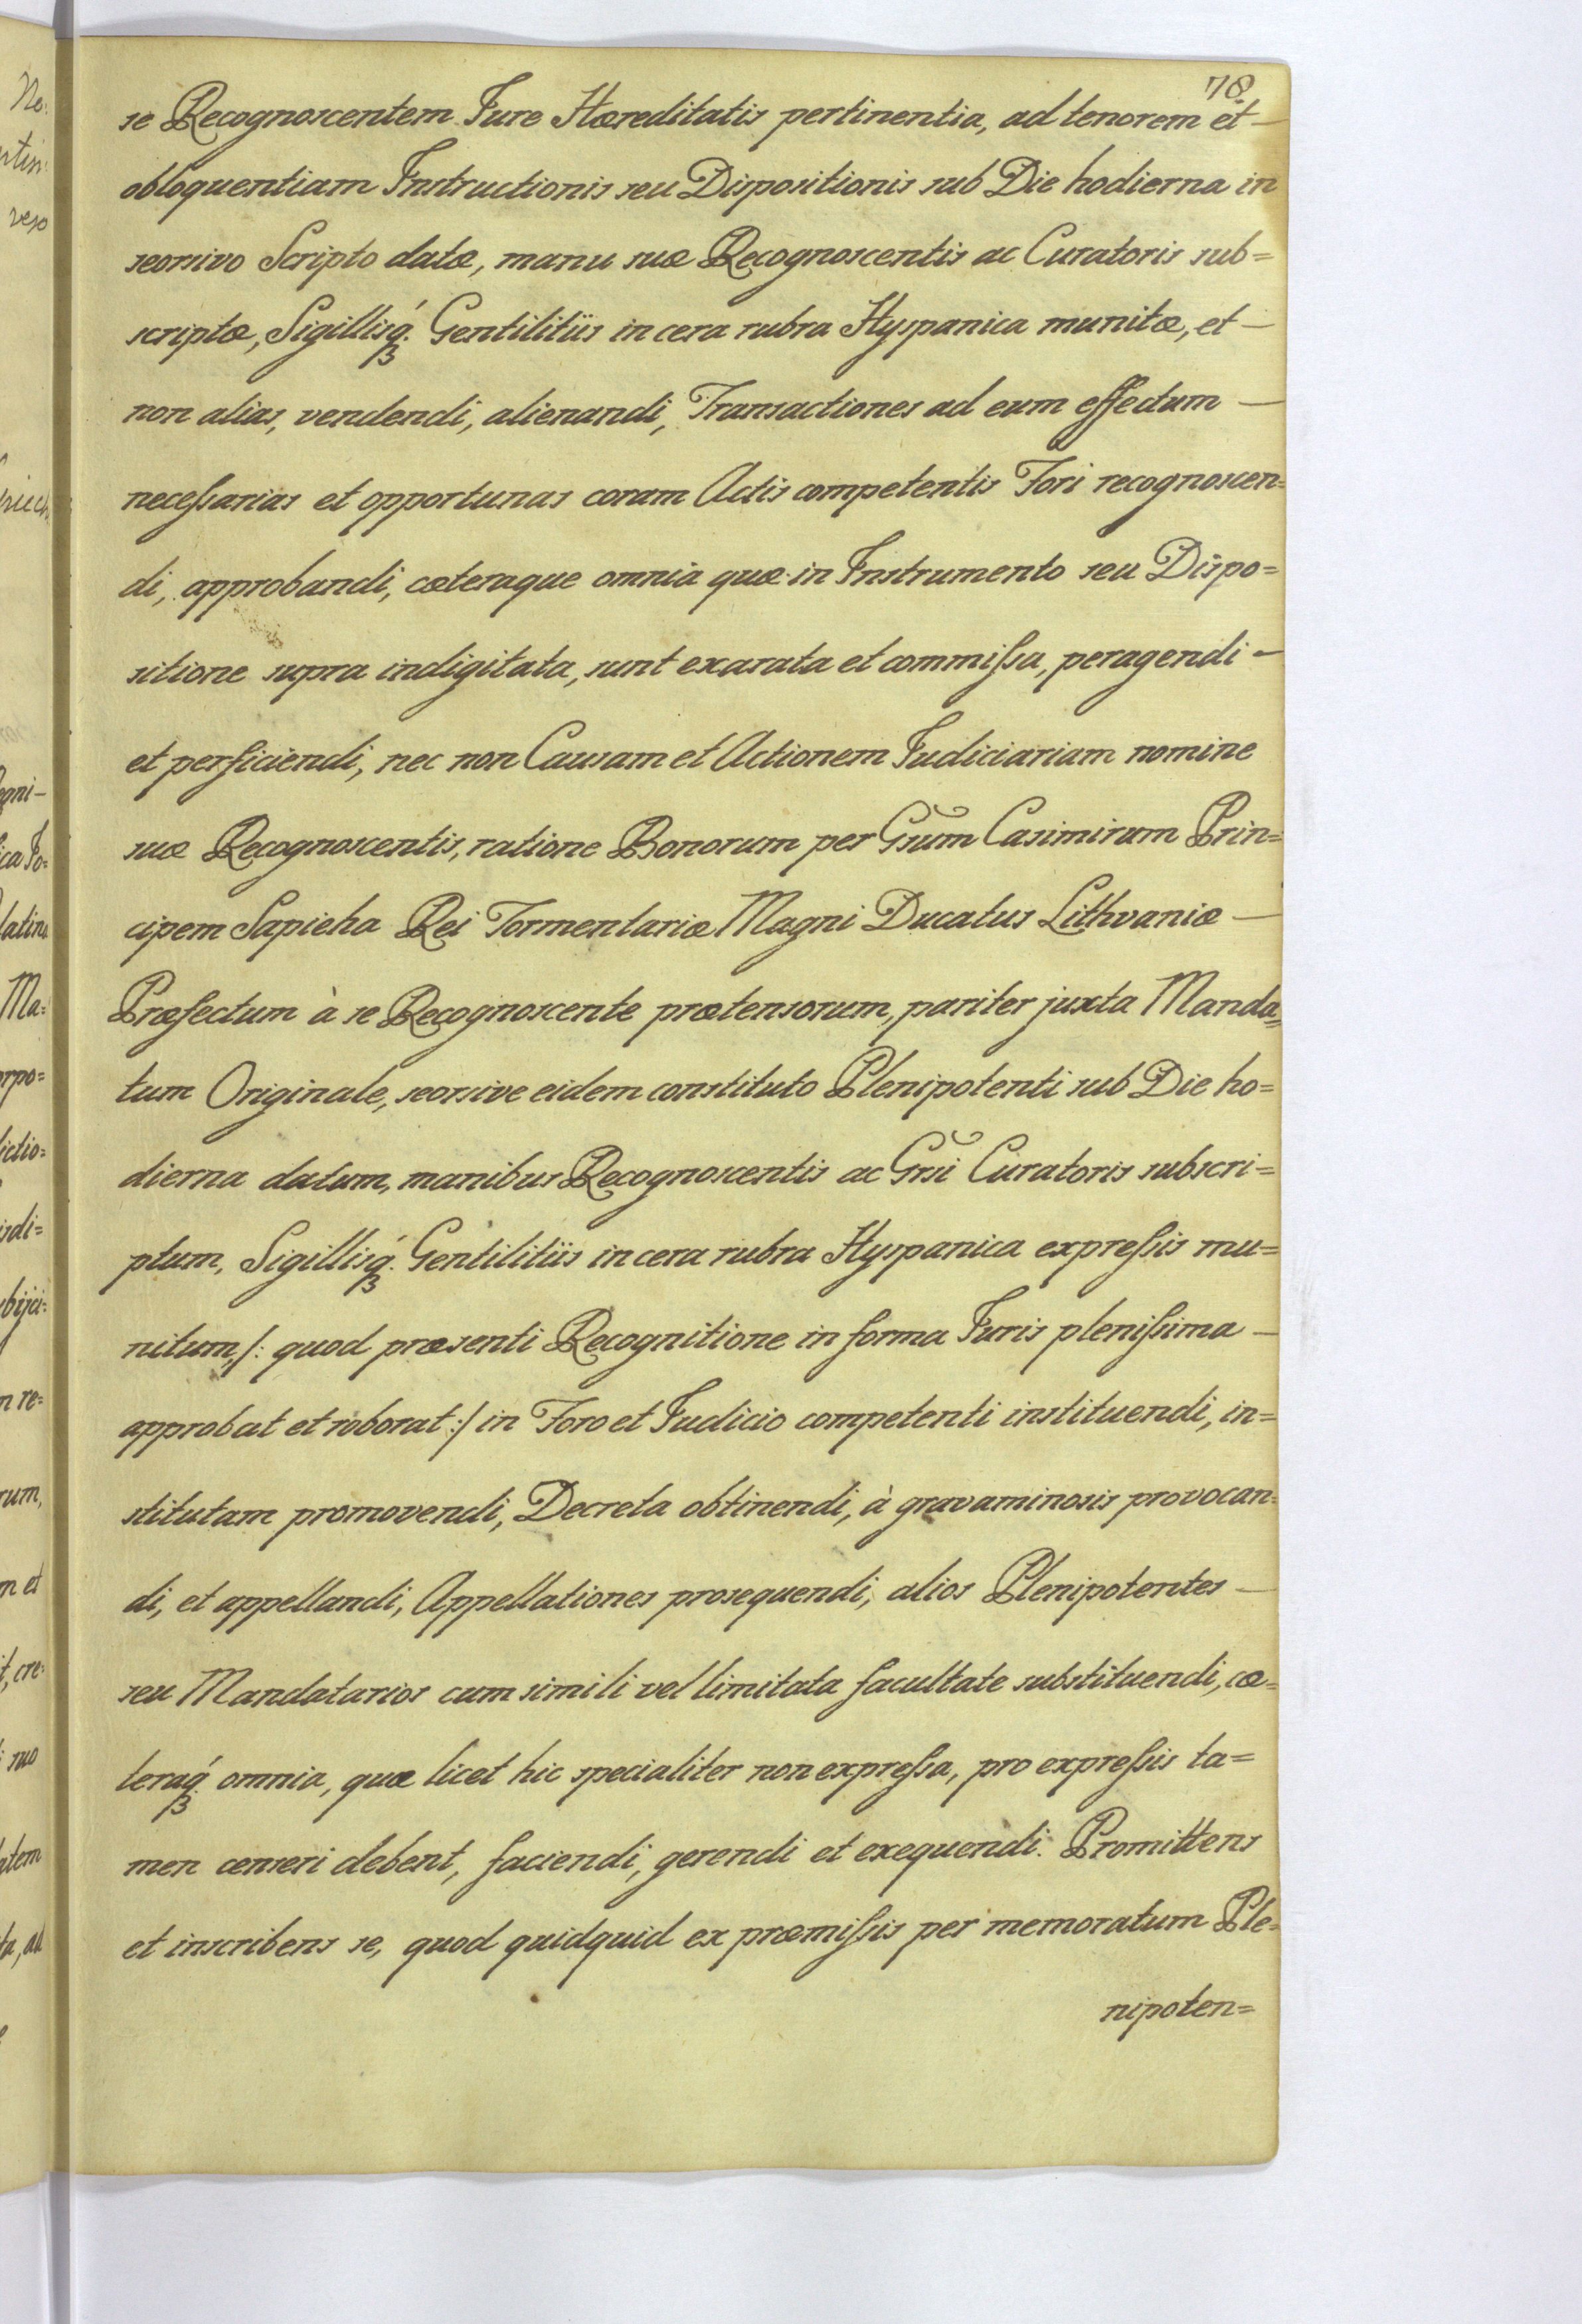 78
se Recognoscentem Jure Hæreditatis pertinentia, ad tenorem et —
obloquentiam Instructionis seu Dispositionis sub Die hodierna in
seorsivo Scripto datæ, manu suæ Recognoscentis ac Curatoris sub=
scriptæ, Sigillisq́ꝫ Gentilitiis in cera rubra Hyspanica munitæ, et —
non alias, vendendi, alienandi, Transactiones ad eum effectum —
neceſsarias et opportunas coram Actis competentis Fori recognoscen=
di, approbandi, cæteraque omnia quæ in Instrumento seu Dispo=
sitione supra indigitata, sunt exarata et commiſsa, peragendi —
et perficiendi, nec non Causam et Actionem Judiciariam nomine
suæ Recognoscentis, ratione Bonorum per Gsũm Casimirum Prin=
cipem Sapieha Rei Tormentariæ Magni Ducatus Lithvaniæ —
Præfectum à se Recognoscente prætensorum, pariter juxta Manda=
tum Originale, seorsive eidem constituto Plenipotenti sub Die ho=
dierna datum, manibus Recognoscentis ac Gsĩ Curatoris subscri=
ptum, Sigillisq́ꝫ Gentilitiis in cera rubra Hyspanica expreſsis mu=
nitum, /: quod præsenti Recognitione in forma Juris pleniſsima —
approbat et roborat :/ in Foro et Judicio competenti instituendi, in=
stitutam promovendi, Decreta obtinendi, à gravaminosis provocan=
di, et appellandi, Appellationes prosequendi, alios Plenipotentes —
seu Mandatarios cum simili vel limitata facultate substituendi, cæ=
teraq́ꝫ omnia, quæ licet hic specialiter non expreſsa, pro expreſsis ta=
men censeri debent, faciendi, gerendi et exequendi. Promittens
et inscribens se, quod quidquid ex præmiſsis per memoratum Ple=
nipoten=